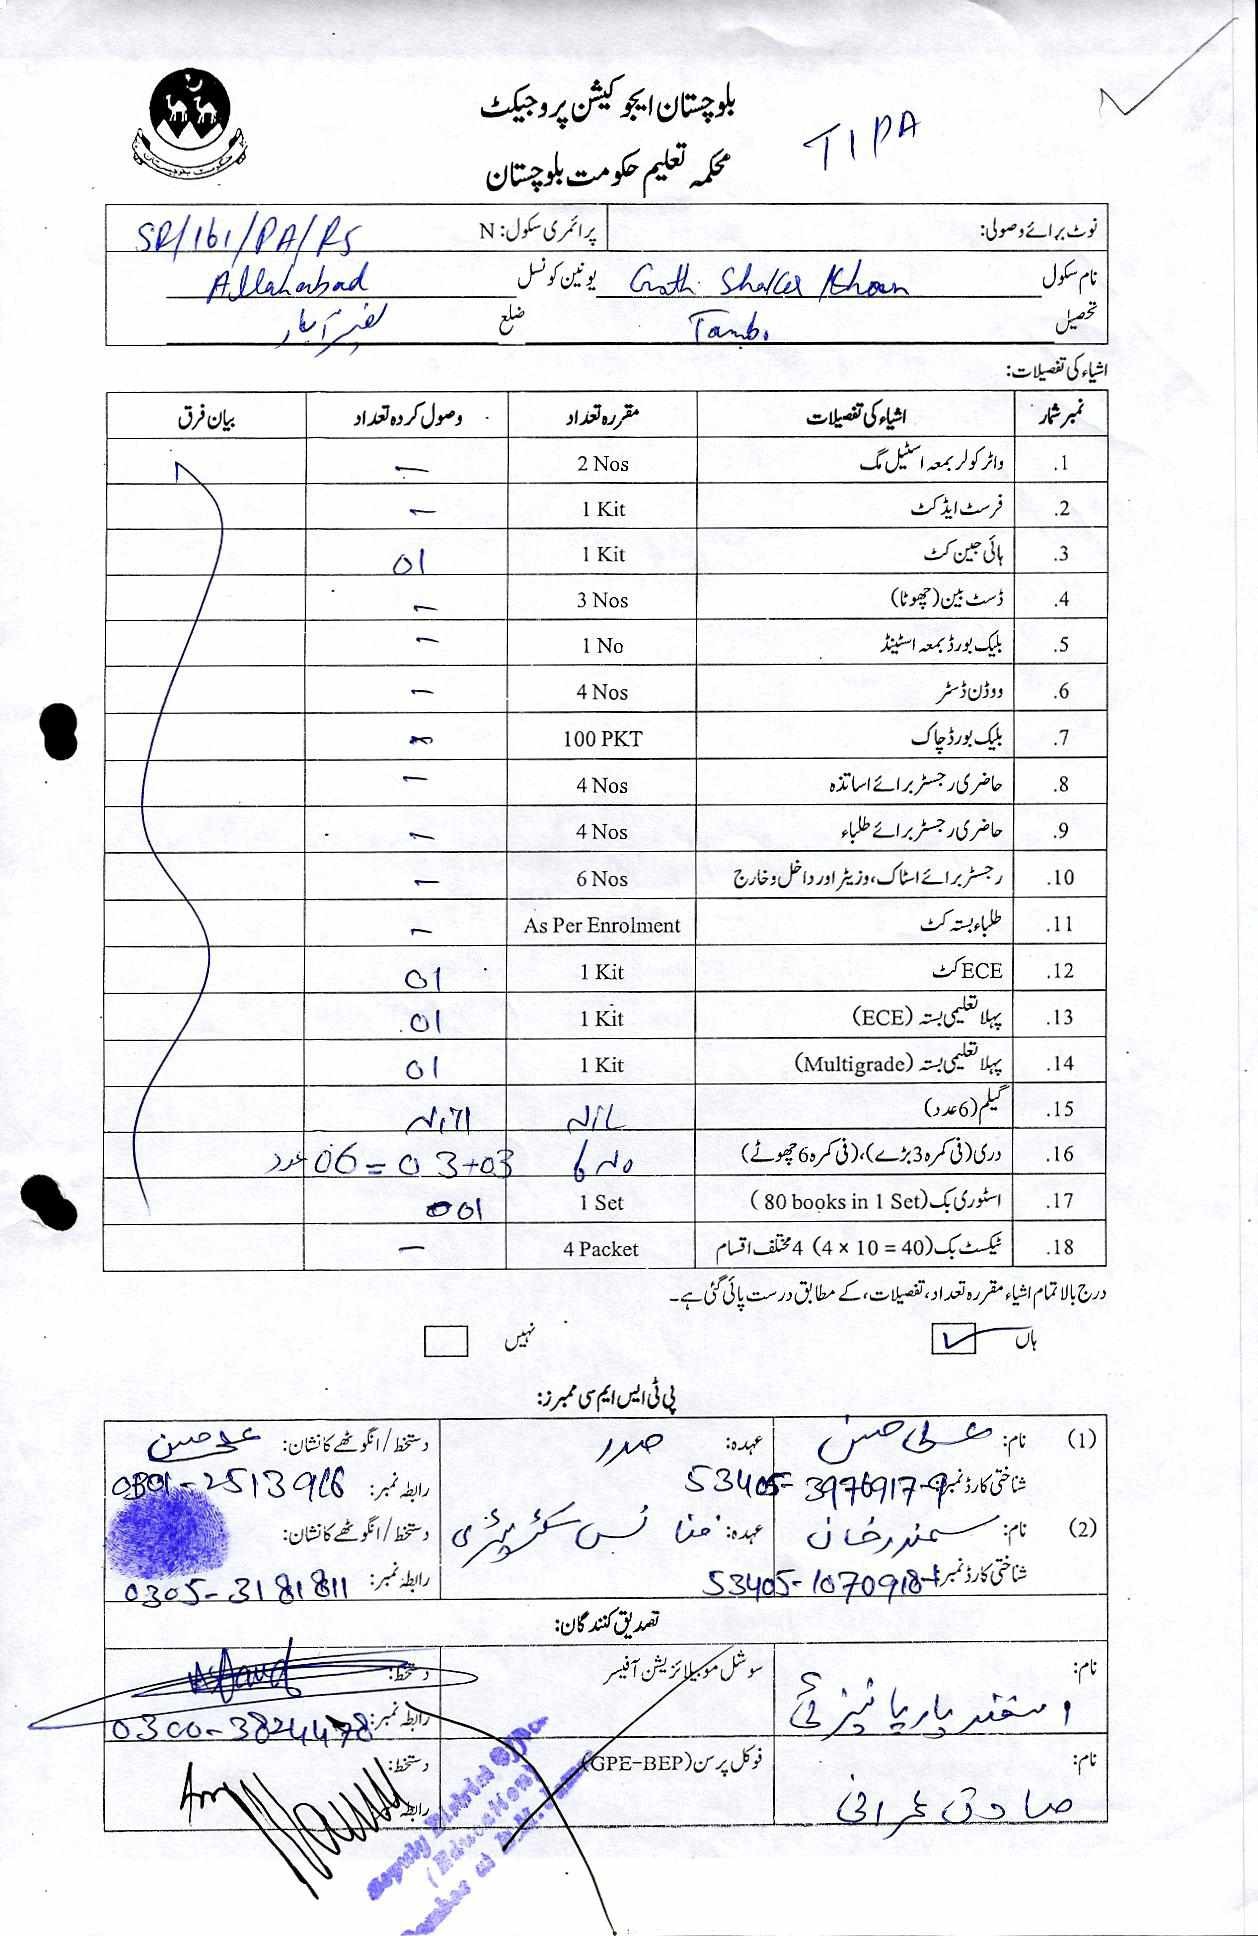 بلوچستان ایجوکیشن پروجیکٹ
محکمہ تعلیم حکومت بلوچستان
TIPA
حکومت بلوچستان
نوٹ برائے وصولی: پرائمری سکول: N SR/161/PA/RS
نام سکول Goth Shaker Khan یونین کونسل Allahabad
تحصیل Tambo ضلع نصیر آباد
اشیاء کی تفصیلات:
نمبر شمار اشیاء کی تفصیلات مقررہ تعداد وصول کردہ تعداد بیان فرق
1. واٹر کولر بمعہ اسٹیل مگ 2 Nos —
2. فرسٹ ایڈ کٹ 1 Kit —
3. ہائی جین کٹ 1 Kit 01
4. ڈسٹ بین (چھوٹا) 3 Nos —
5. بلیک بورڈ بمعہ اسٹینڈ 1 No —
6. ووڈن ڈسٹر 4 Nos —
7. بلیک بورڈ چاک 100 PKT
8. حاضری رجسٹر برائے اساتذہ 4 Nos —
9. حاضری رجسٹر برائے طلباء 4 Nos —
10. رجسٹر برائے اسٹاک، وزیٹر اور داخل و خارج 6 Nos —
11. طلباء بستہ کٹ As Per Enrolment —
12. ECE کٹ 1 Kit 01
13. پہلا تعلیمی بستہ (ECE) 1 Kit 01
14. پہلا تعلیمی بستہ (Multigrade) 1 Kit 01
15. گیلم (6 عدد) NIL
16. دری (فی کمرہ 3 بڑے)، (فی کمرہ 6 چھوٹے) 6 No 03+03 = 06 عدد
17. اسٹوری بک (80 books in 1 Set) 1 Set 01
18. ٹیکسٹ بک (4 × 10 = 40) 4 مختلف اقسام 4 Packet —
درج بالا تمام اشیاء مقررہ تعداد، تفصیلات، کے مطابق درست پائی گئی ہے۔
ہاں نہیں
پی ٹی ایس ایم سی ممبرز:
(1) نام: علی حسن عہدہ: صدر دستخط / انگوٹھے کا نشان: علی حسن
شناختی کارڈ نمبر: 53405-3976917-9 رابطہ نمبر: 0301-2513916
(2) نام: سمندر خان عہدہ: فنانس سیکٹریٹری دستخط / انگوٹھے کا نشان:
شناختی کارڈ نمبر: 53405-1070918-1 رابطہ نمبر: 0305-3181811
تصدیق کنندگان:
نام: سوشل موبیلائزیشن آفیسر دستخط:
رابطہ نمبر: 0300-3824478
نام: صادق عمرانی فوکل پرسن (GPE-BEP) دستخط:
رابطہ
Deputy District Officer
(Education)